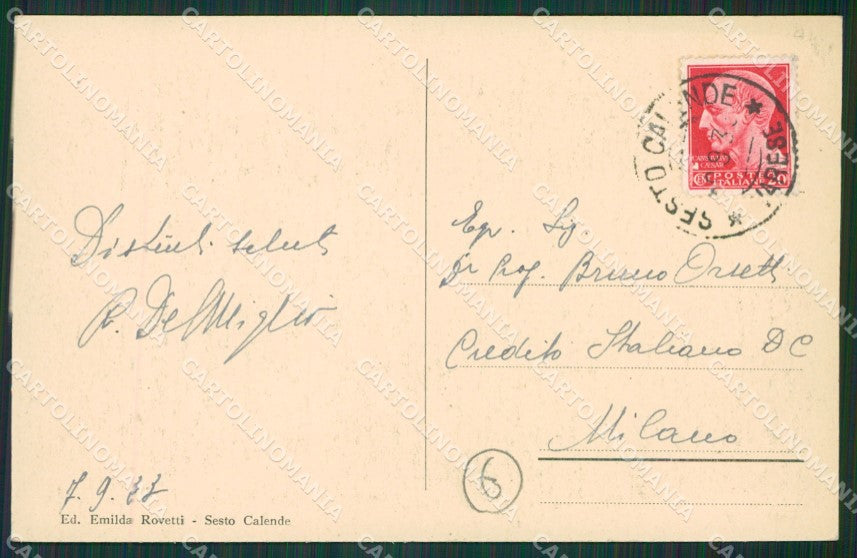 Distinti saluti
R. Del Miglio
7.9.33
Ed. Emilda Rovetti - Sesto Calende
SESTO CALENDE * VARESE *
CAESAR
POSTE
ITALIANE
Egr. Sig.
Dr Prof. Bruno Orsetti
Credito Italiano DC
Milano
6
CARTOLINOMANIA